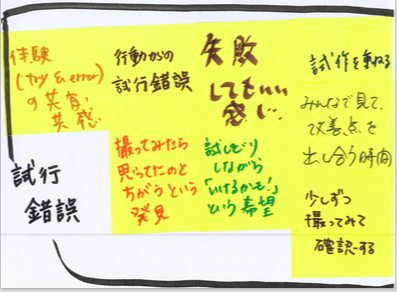 体験
(try & error)
の共有・
共感
行動からの
試行錯誤
失敗
してもいい
感じ
試作を重ねる
みんなで見て、
改善点を
出し合う時間
試行
錯誤
撮ってみたら
思ってたのと
ちがうという
発見
試しどり
しながら
「いけるかも!」
という希望
少しずつ
撮ってみて
確認する